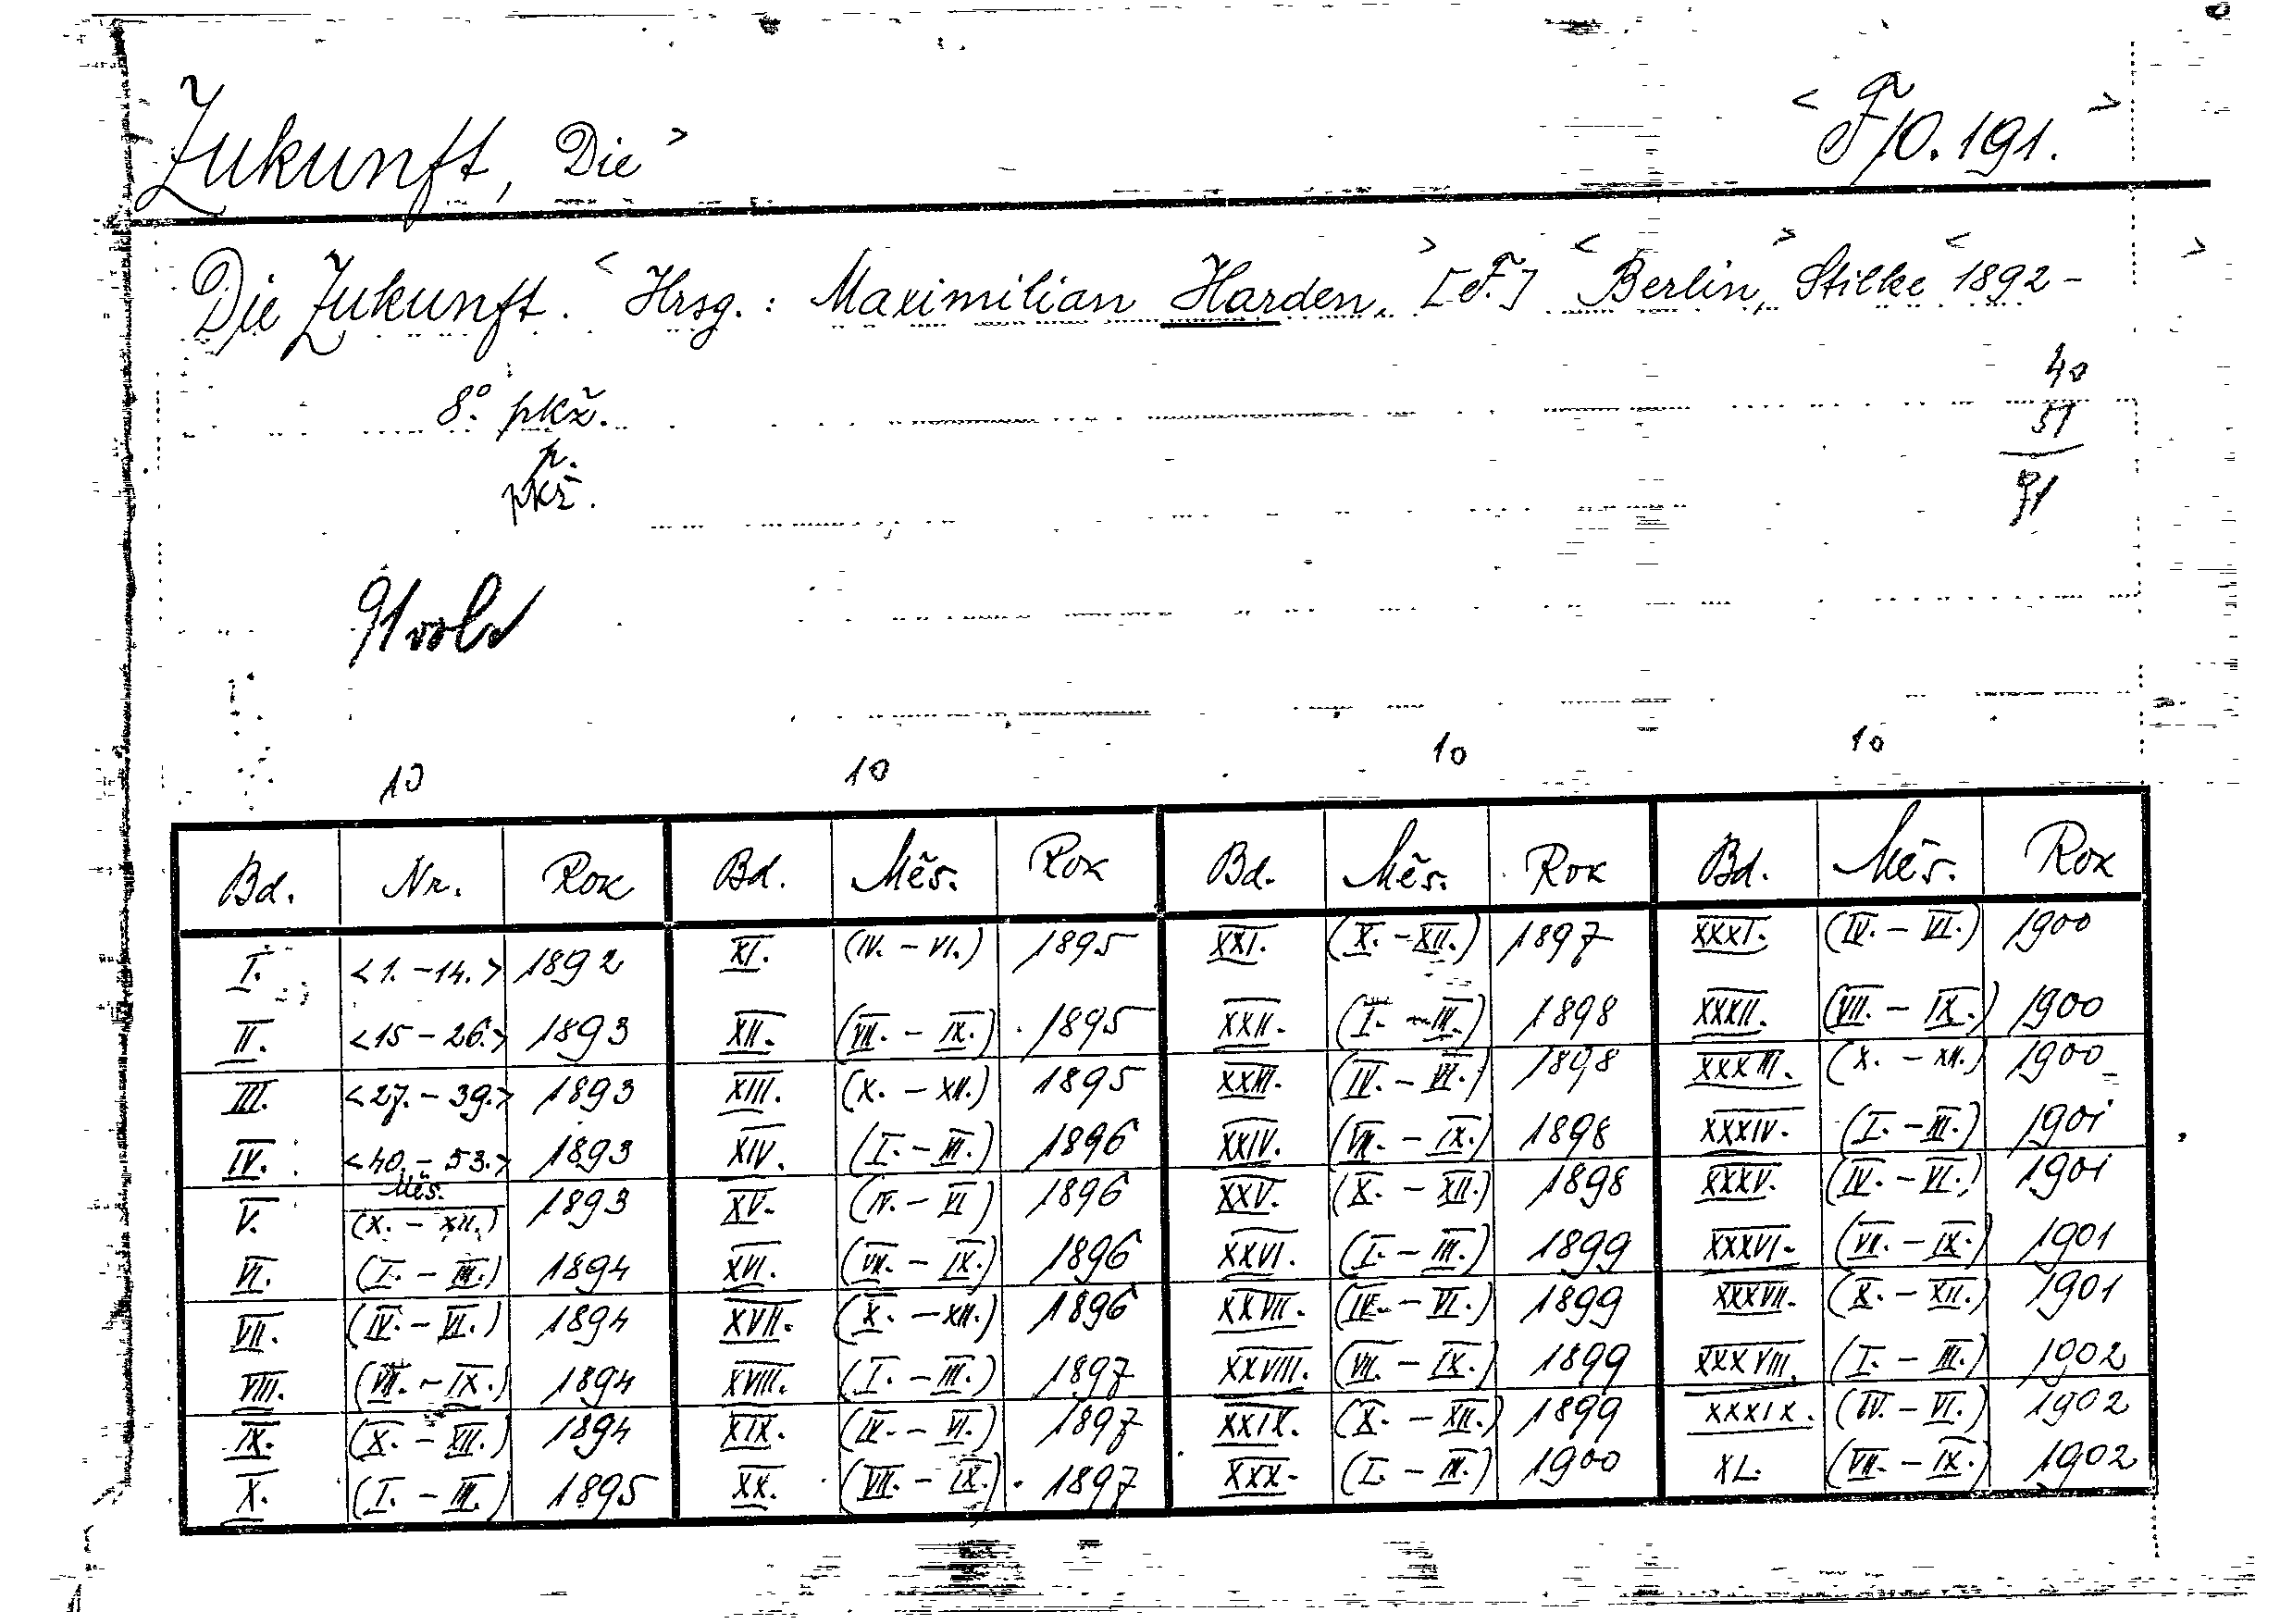 Zukunft, Die > < F 10.191. >
Die Zukunft. < Hrsg.: Maximilian Harden. > [F.] < Berlin, > Stilke < 1892 - >
8.° pkž. 40
p. 51
pkž. 91
91 vols
10 10 10 10
Bd. Nr. Rok Bd. Měs. Rok Bd. Měs. Rok Bd. Měs. Rok
I. <1. - 14.> 1892 XI. (IV. - VI.) 1895 XXI. (X. - XII.) 1897 XXXI. (IV. - VI.) 1900
II. <15 - 26.> 1893 XII. (VII. - IX.) 1895 XXII. (I. - III.) 1898 XXXII. (VII. - IX.) 1900
III. <27. - 39.> 1893 XIII. (X. - XII.) 1895 XXIII. (IV. - VI.) 1898 XXXIII. (X. - XII.) 1900
IV. <40. - 53.> 1893 XIV. (I. - III.) 1896 XXIV. (VII. - IX.) 1898 XXXIV. (I. - III.) 1901
Měs.
V. (X. - XII.) 1893 XV. (IV. - VI) 1896 XXV. (X. - XII.) 1898 XXXV. (IV. - VI.) 1901
VI. (I. - III.) 1894 XVI. (VII. - IX.) 1896 XXVI. (I. - III.) 1899 XXXVI. (VII. - IX.) 1901
VII. (IV. - VI.) 1894 XVII. (X. - XII.) 1896 XXVII. (IV. - VI.) 1899 XXXVII. (X. - XII.) 1901
VIII. (VII. - IX.) 1894 XVIII. (I. - III.) 1897 XXVIII. (VII. - IX.) 1899 XXXVIII. (I. - III.) 1902
IX. (X. - XII.) 1894 XIX. (IV. - VI.) 1897 XXIX. (X. - XII.) 1899 XXXIX. (IV. - VI.) 1902
X. (I. - III.) 1895 XX. (VII. - IX.) 1897 XXX. (I. - III.) 1900 XL. (VII. - IX.) 1902